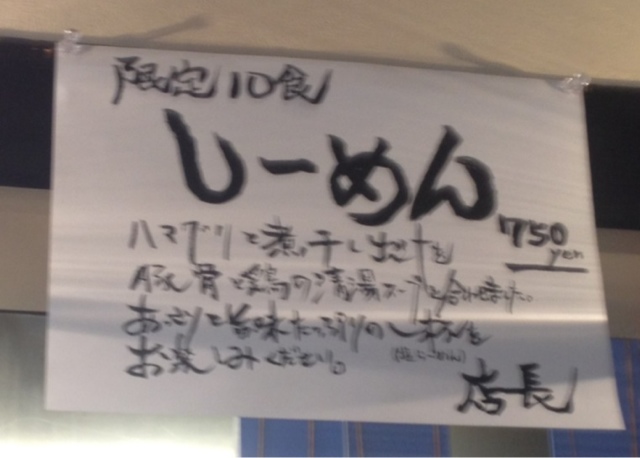 限定10食
しーめん
750
yen
ハマグリと煮干し出汁を
豚骨と鶏の清湯スープと合わせました。
あっさりと旨味たっぷりの一杯を
お楽しみください。
店長